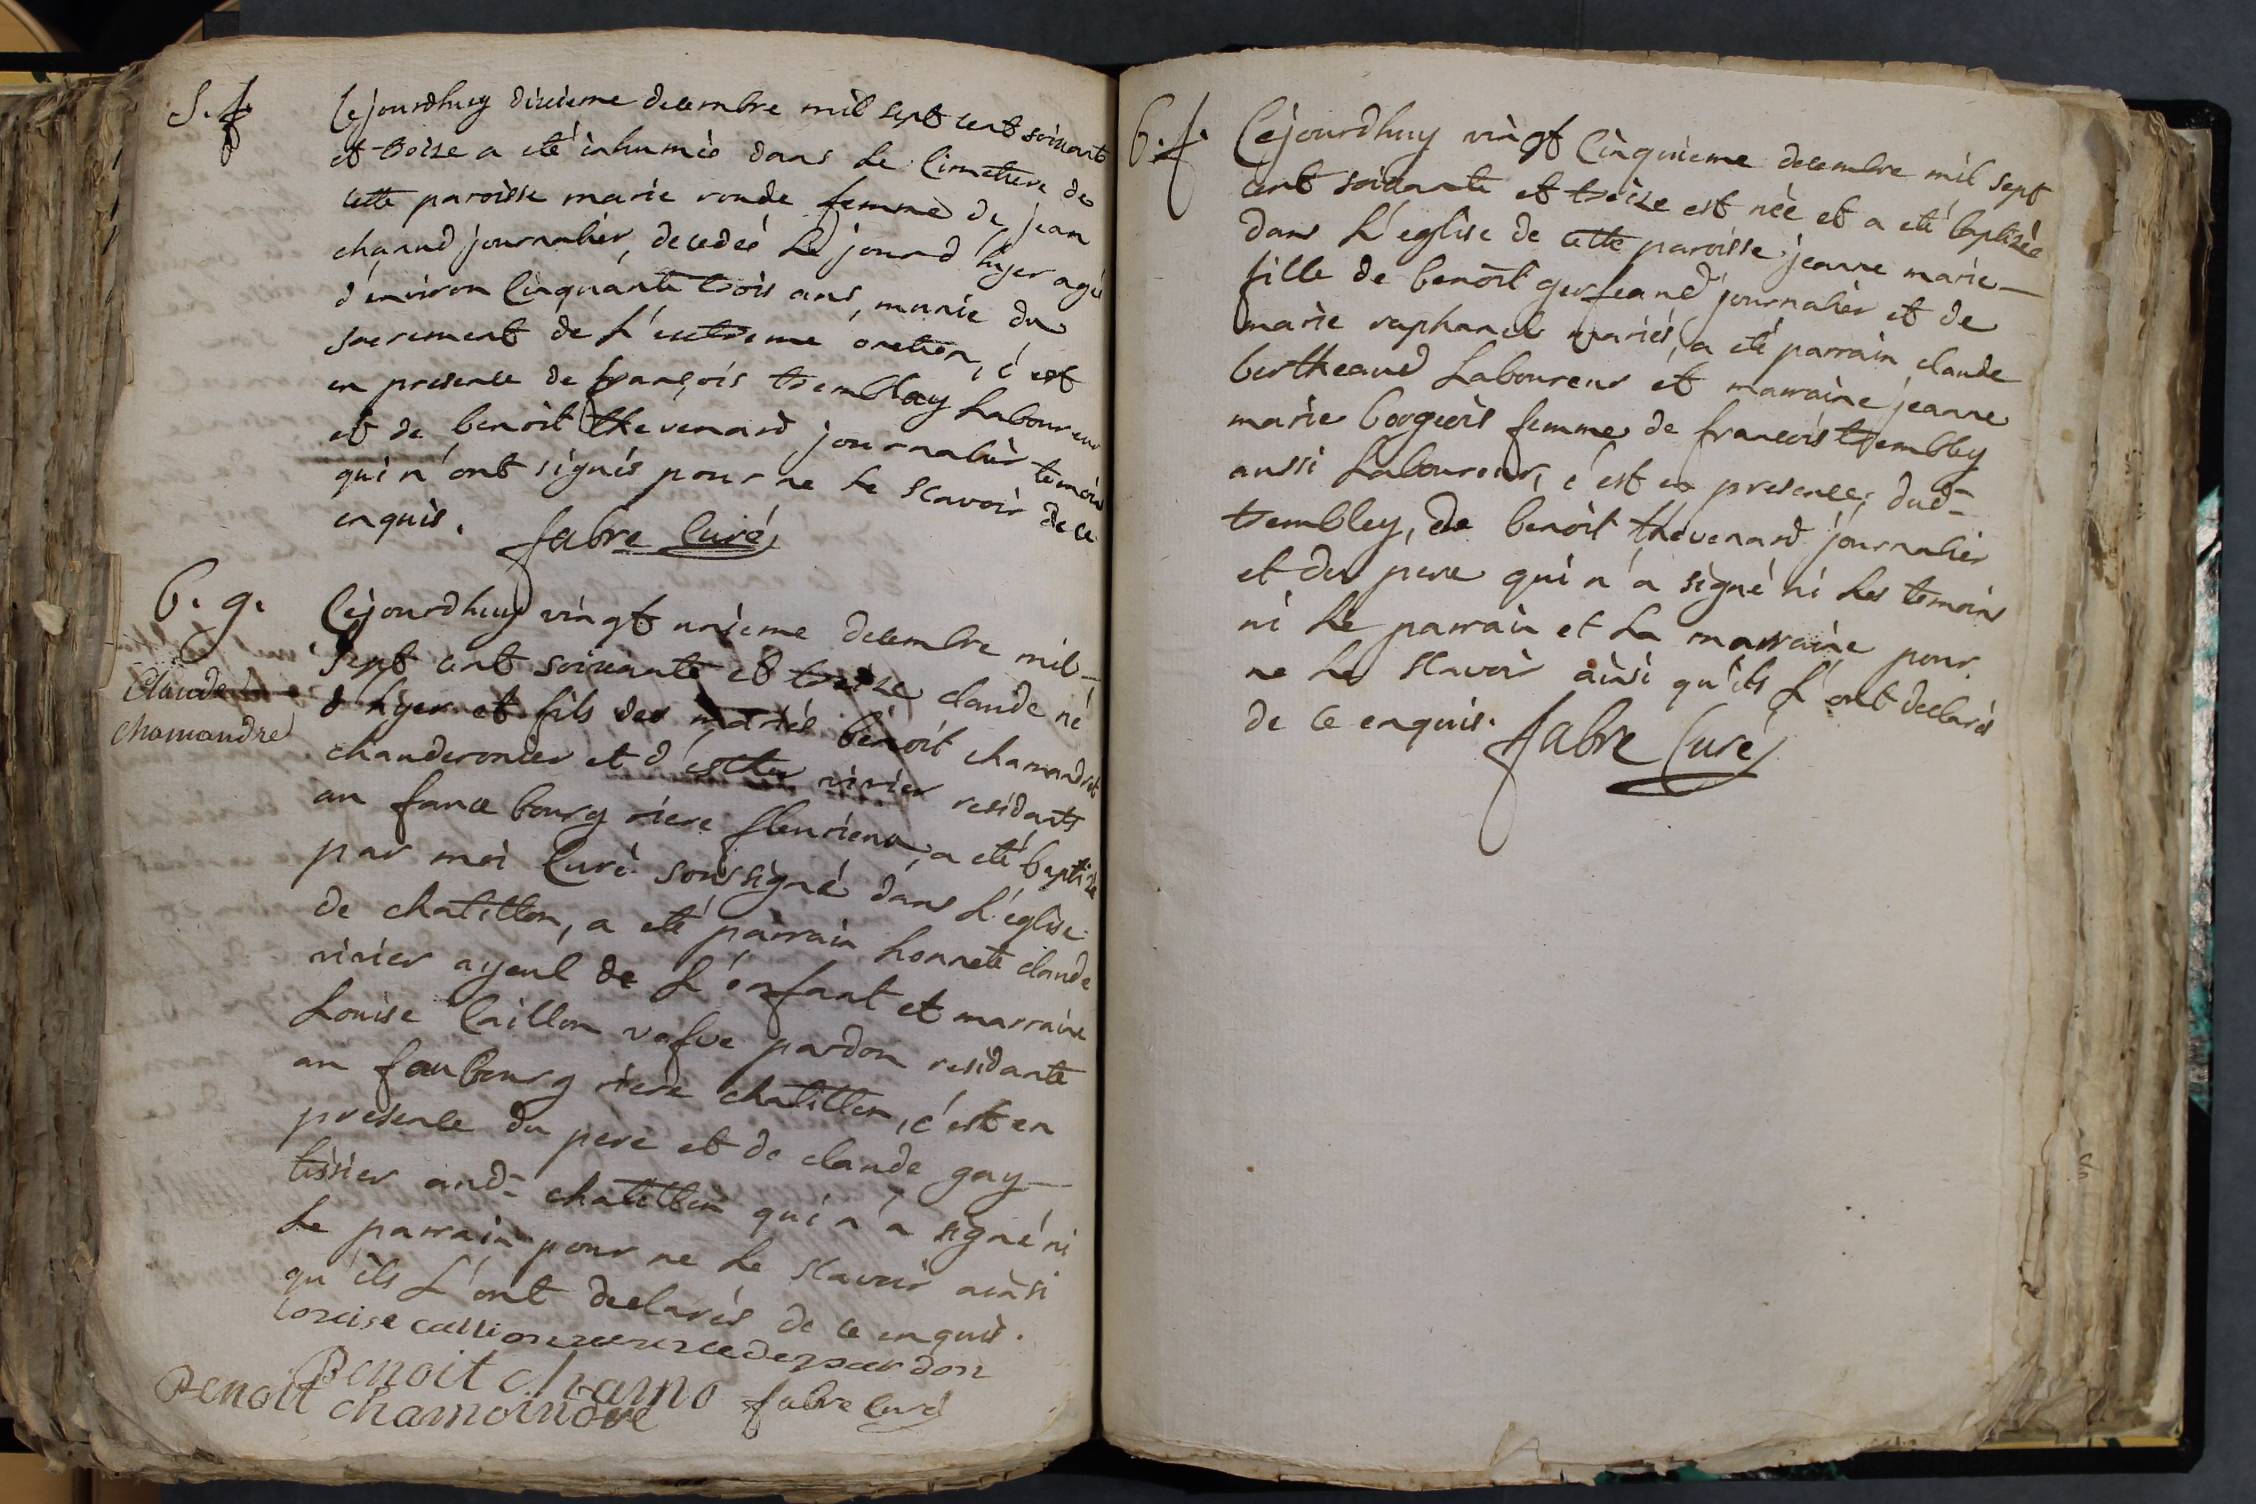 S. f.
Cejourdhuy dixieme decembre mil sept cent soixante
et treize a eté inhumée dans le Cimetiere de
cette paroisse marie ronde femme de jean
chanud journalier, decedeé Le jourd'hyer ageé
d'environ Cinquante trois ans, munie du
sacrement de L'extreme onction, c'est
en presence de françois tremblay Laboureur
et de benoit thevenard journalier temoins
qui n'ont signés pour ne le scavoir de ce
enquis. fabre Curé
b. g.
Claude
chamandre
Cejourdhuy vingt unieme decembre mil
sept cent soixante et treize claude né
d'hyer et fils des mariés benoit chamandre
chauderonier et d'esther vivier residants
au fauce bourg riere fleurieux, a eté baptizé
par moi Curé soussigné dans L'église
de chatillon, a eté parrain honnete claude
vivier ayeul de L'enfant et marraine
Louise Caillon vefve pardon residante
au faubourg riere chatillon, c'est en
presence du pere et de claude gay
tissier aud chatillon qui n'a signé ni
Le parrain pour ne Le scavoir ainsi
qu'ils L'ont declarés de ce enquis.
Benoit chamo
Benoit chamoindre fabre Curé
b. f.
Cejourdhuy vingt Cinquieme decembre mil sept
cent soixante et treize est née et a eté baptizée
dans L'eglise de cette paroisse jeanne marie
fille de benoit journalier et de
marie raphanel mariés, a eté parrain claude
bertheaud Laboureur et marraine jeanne
marie borgeois femme de francois trembley
aussi Laboureur, c'est en presence, dud
trembley, de benoit thevenard journalier
et du pere qui n'a signé ni Les temoins
ni Le parrain et La marraine pour
ne Le scavoir ainsi qu'ils L'ont declarés
de ce enquis. fabre Curé